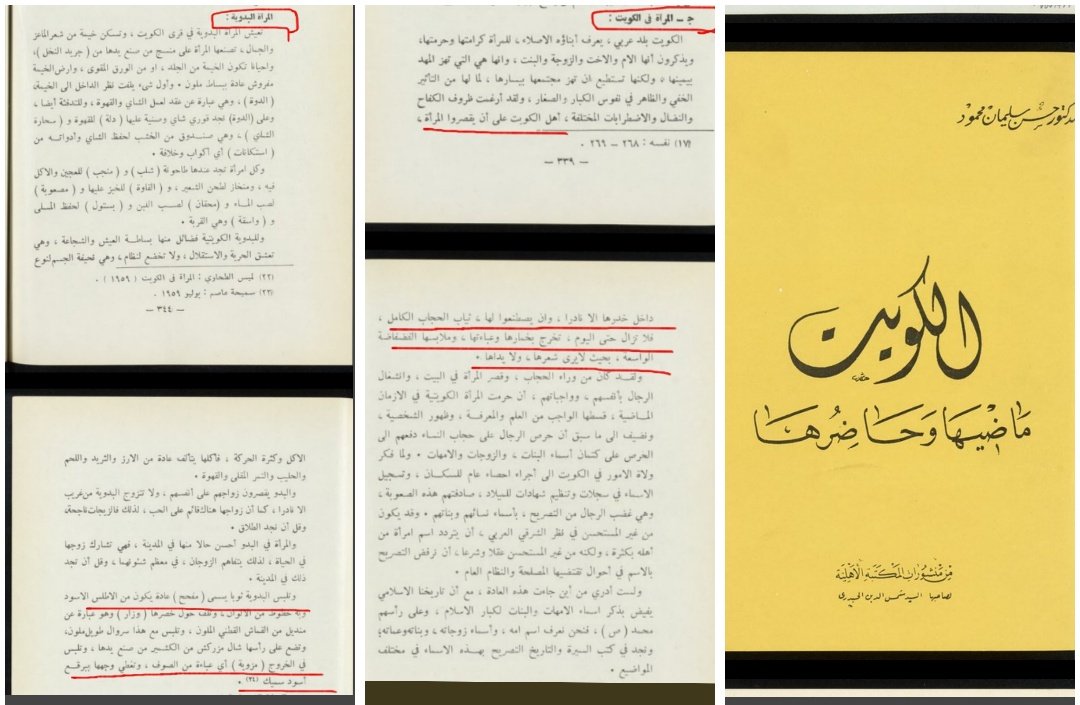 دكتور حسن سليمان محمود
الكويت
مَاضِيهَا وَحَاضِرُهَا
من منشورات المكتبة الأهلية
لصاحبها السيد شمس الدين الحيدري
ج ــ المرأة فى الكويت :
الكويت بلد عربي ، يعرف أبناؤه الاصلاء ، للمرأة كرامتها وحرمتها،
ويذكرون أنها الام والاخت والزوجة والبنت ، وانها هي التي تهز المهد
بيمينها ، ولكنها تستطيع ان تهز مجتمعها بيسارها ، لما لها من التأثير
الخفي والظاهر في نفوس الكبار والصغار ، ولقد أرغمت ظروف الكفاح
والنضال والاضطرابات المختلفة ، أهل الكويت على أن يقصروا المرأة ،
(١٧) نفسه : ٢٦٨ – ٢٦٩ .
— ٣٣٩ —
داخل خدرها الا نادرا ، وان يصطنعوا لها ، ثياب الحجاب الكامل ،
فلا تزال حتى اليوم ، تخرج بخمارها وعباءتها ، وملابسها الفضفاضة
الواسعة ، بحيث لايرى شعرها ، ولا يداها .
ولقد كان من وراء الحجاب ، وقصر المرأة في البيت ، وانشغال
الرجال بأنفسهم ، وواجباتهم ، أن حرمت المرأة الكويتية في الازمان
الماضية ، قسطها الواجب من العلم والمعرفة ، وظهور الشخصية ،
ونضيف الى ما سبق أن حرص الرجال على حجاب النساء دفعهم الى
الحرص على كتمان أسماء البنات ، والزوجات والامهات . ولما فكر
ولاة الامور في الكويت الى أجراء احصاء عام للسكان ، وتسجيل
الاسماء في سجلات وتنظيم شهادات للميلاد ، صادفتهم هذه الصعوبة ،
وهي غضب الرجال من التصريح ، بأسماء نسائهم وبناتهم . وقد يكون
من غير المستحسن في نظر الشرقي العربي ، أن يتردد اسم امرأة من
أهله بكثرة ، ولكنه من غير المستحسن عقلا وشرعا ، أن نرفض التصريح
بالاسم في أحوال تقتضيها المصلحة والنظام العام .
ولست أدري من أين جاءت هذه العادة ، مع أن تاريخنا الاسلامي
يفيض بذكر اسماء الامهات والبنات لكبار الاسلام ، وعلى رأسهم
محمد ( ص ) ، فنحن نعرف اسم امه ، وأسماء زوجاته ، وبناته وعماته؛
ونجد في كتب السيرة والتاريخ التصريح بهذه الاسماء في مختلف
المواضيع .
المرأة البدوية :
تعيش المرأة البدوية في قرى الكويت ، وتسكن خيمة من شعر الماعز
والجمال ، تصنعها المرأة على منسج من صنع يدها من ( جريد النخل )،
واحيانا تكون الخيمة من الجلد ، او من الورق المقوى ، وارض الخيمة
مفروش عادة ببساط ملون . وأول شيء يلفت نظر الداخل الى الخيمة،
( الدوة ) ، وهي عبارة عن عقد لعمل الشاي والقهوة ، وللتدفئة أيضا ،
وعلى (الدوة) تجد فوري شاي وصينية عليها ( دلة ) للقهوة و ( سحارة
الشاي ) ، وهي صندوق من الخشب لحفظ الشاي وأدواته من
( استكانات ) أي أكواب وخلافة .
وكل امرأة تجد عندها طاحونة ( شلب ) و ( منجب ) للعجين والاكل
فيه ، ومنخاز لطحن الشعير ، و ( القاوة ) للخبز عليها و ( مصعوبة )
لصب الماء و (محقان ) لصب اللبن و ( يستول ) لحفظ المسلى
و ( واسقة ) وهي القربة .
وللبدوية الكويتية فضائل منها بساطة العيش والشجاعة ، وهي
تعشق الحرية والاستقلال ، ولا تخضع لنظام ، وهي نحيفة الجسم لنوع
(٢٢) لميس الطحاوي : المرأة فى الكويت ( ١٩٥٩ ) .
(٢٣) سميحة عاصم : يوليو ١٩٥٩ .
— ٣٤٤ —
الاكل وكثرة الحركة ، فأكلها يتألف عادة من الارز والثريد واللحم
والحليب والتمر المقلى والقهوة .
والبدو يقصرون زواجهم على أنفسهم ، ولا تتزوج البدوية من غريب
الا نادرا ، كما أن زواجها هناك قائم على الحب ، لذلك فالزيجات ناجحة،
وقل أن نجد الطلاق .
والمرأة في البدو أحسن حالا منها في المدينة ، فهي تشارك زوجها
في الحياة ، لذلك يتفاهم الزوجان ، في معظم شئونهما ، وقل أن نجد
ذلك في المدينة .
وتلبس البدوية ثوبا يسمى ( مفحح ) عادة يكون من الاطلس الاسود
وبه خطوط من الالوان ، وتلف حول خصرها ( وزار ) وهو عبارة عن
منديل من القماش القطني الملون ، وتلبس مع هذا سروال طويل ملون،
وتضع على رأسها شال مزركش من الكشمير من صنع يدها ، وتلبس
في الخروج ( مزوية ) أي عباءة من الصوف ، وتغطي وجهها ببرقع
أسود سميك (٢٤) .